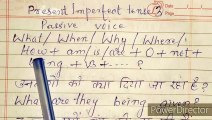 Present Imperfect tense 3
Passive voice
What/ When/ Why/ Where/
How + am/is/are + O + not +
being + V3 + ....?
को क्या दिया जा रहा है?
What are they being given?
PowerDirector